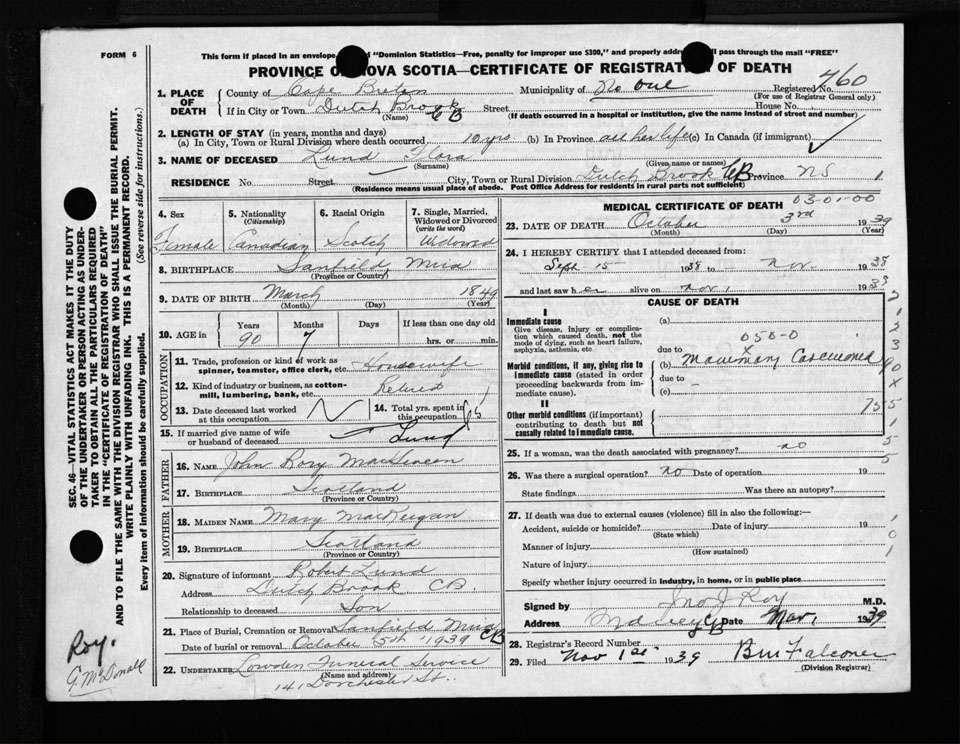 FORM 6
This form if placed in an envelope "Dominion Statistics—Free, penalty for improper use $300," and properly address will pass through the mail "FREE"
PROVINCE OF NOVA SCOTIA—CERTIFICATE OF REGISTRATION OF DEATH
1. PLACE OF DEATH County of Cape Breton Municipality of No one Registered No. 460
(For use of Registrar General only)
If in City or Town Dutch Brook CB Street House No.
(Name) (If death occurred in a hospital or institution, give the name instead of street and number)
2. LENGTH OF STAY (in years, months and days)
(a) In City, Town or Rural Division where death occurred 10 yrs (b) In Province all her life (c) In Canada (if immigrant)
3. NAME OF DECEASED Lund Flora
(Surname) (Given name or names)
RESIDENCE No. Street City, Town or Rural Division Dutch Brook CB. Province NS
(Residence means usual place of abode. Post Office Address for residents in rural parts not sufficient)
4. Sex Female
5. Nationality (Citizenship) Canadian
6. Racial Origin Scotch
7. Single, Married, Widowed or Divorced (write the word) Widowed
8. BIRTHPLACE Sanfield, Mira
(Province or Country)
9. DATE OF BIRTH March 1849
(Month) (Day) (Year)
10. AGE in Years 90 Months 7 Days If less than one day old hrs. or min.
OCCUPATION
11. Trade, profession or kind of work as spinner, teamster, office clerk, etc. Housewife
12. Kind of industry or business, as cotton-mill, lumbering, bank, etc. Retired
13. Date deceased last worked at this occupation
14. Total yrs. spent in this occupation
15. If married give name of wife or husband of deceased Lund
FATHER
16. NAME John Rory MacLean
17. BIRTHPLACE Scotland
(Province or Country)
MOTHER
18. MAIDEN NAME Mary MacKeigan
19. BIRTHPLACE Scotland
(Province or Country)
20. Signature of informant Robert Lund
Address Dutch Brook CB
Relationship to deceased Son
21. Place of Burial, Cremation or Removal Sanfield Mira CB
Date of burial or removal October 5th 1939
22. UNDERTAKER Lowden Funeral Service
(Name and address)
141 Dorchester St.
MEDICAL CERTIFICATE OF DEATH
03-01-00
23. DATE OF DEATH October 3rd 1939
(Month) (Day) (Year)
24. I HEREBY CERTIFY that I attended deceased from:
Sept 15 1938 to Nov. 1938
and last saw her alive on Nov 1
CAUSE OF DEATH
I
Immediate cause
Give disease, injury or complication which caused death, not the mode of dying, such as heart failure, asphyxia, asthenia, etc
(a)
due to 050-0
Morbid conditions, if any, giving rise to immediate cause (stated in order proceeding backwards from immediate cause).
(b) Mammary Carcinoma
due to
(c)
II
Other morbid conditions (if important) contributing to death but not causally related to immediate cause.
25. If a woman, was the death associated with pregnancy? no
26. Was there a surgical operation? no Date of operation 19
State findings Was there an autopsy?
27. If death was due to external causes (violence) fill in also the following:—
Accident, suicide or homicide? Date of injury 19
(State which)
Manner of injury
(How sustained)
Nature of injury
Specify whether injury occurred in industry, in home, or in public place
Signed by Jno J Roy M.D.
Address Sydney CB Date Nov. 1939
28. Registrar's Record Number
29. Filed Nov 1st 1939 BM Falconer
(Division Registrar)
SEC. 46—VITAL STATISTICS ACT MAKES IT THE DUTY
OF THE UNDERTAKER OR PERSON ACTING AS UNDERTAKER TO OBTAIN ALL THE PARTICULARS REQUIRED
IN THE "CERTIFICATE OF REGISTRATION OF DEATH"
AND TO FILE THE SAME WITH THE DIVISION REGISTRAR WHO SHALL ISSUE THE BURIAL PERMIT.
WRITE PLAINLY WITH UNFADING INK. THIS IS A PERMANENT RECORD.
Every item of information should be carefully supplied. (See reverse side for instructions.)
Roy.
G. McDonald